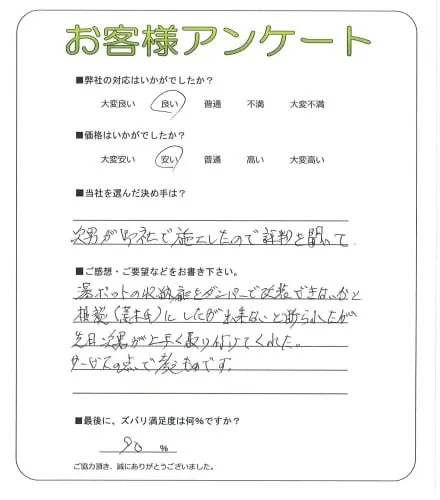 お客様アンケート
■弊社の対応はいかがでしたか？
大変良い 良い 普通 不満 大変不満
■価格はいかがでしたか？
大変安い 安い 普通 高い 大変高い
■当社を選んだ決め手は？
次男が御社で施工したので評判を聞いて
■ご感想・ご要望などをお書き下さい。
湯ポットの収納部をダンパーで改装できないかと
相談（藁科氏）にしたが出来ないと断られたが
先日次男が上手く取り付けてくれた。
サービスの点で考えものです。
■最後に、ズバリ満足度は何%ですか？
90 %
ご協力頂き、誠にありがとうございました。